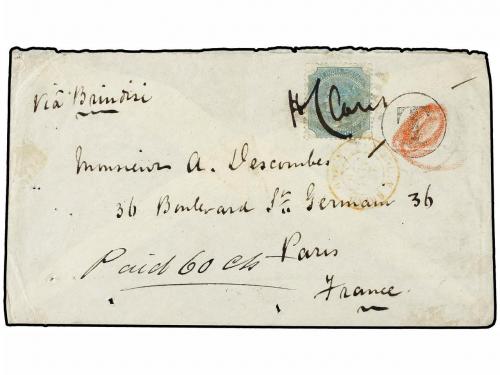 via Brindisi
Monsieur A. Descombes
36 Boulevard St. Germain 36
Paid 60 cts Paris
France